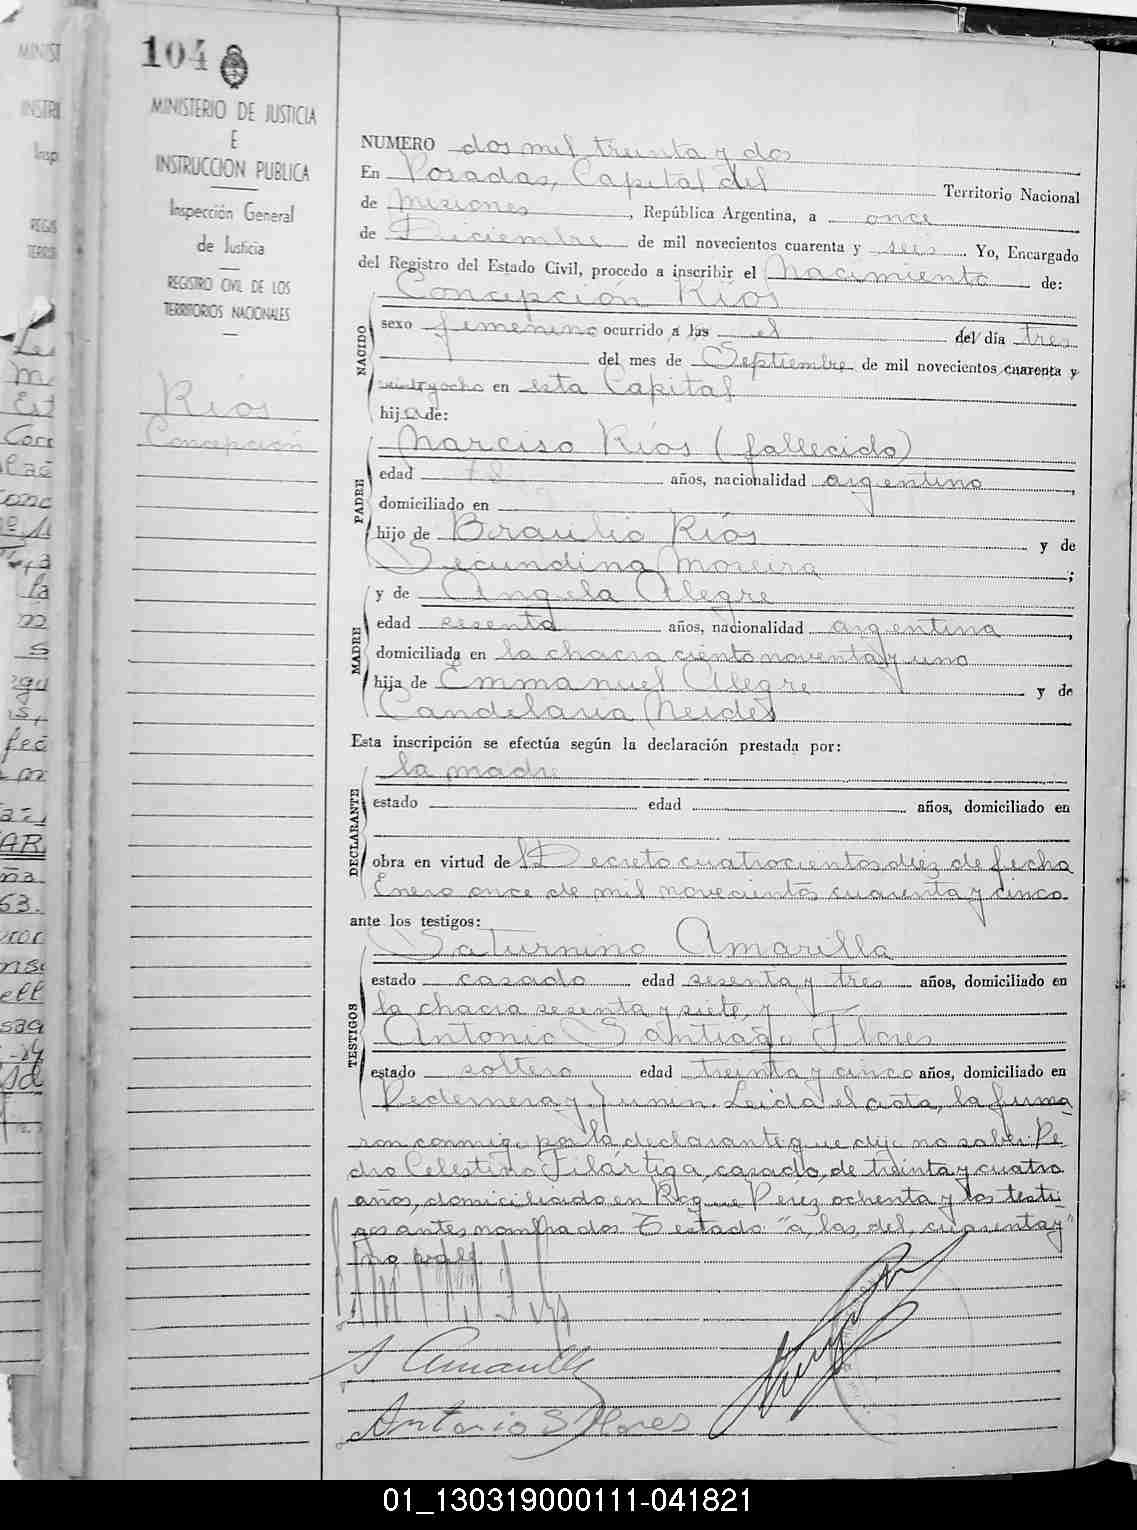 104
MINISTERIO DE JUSTICIA
E
INSTRUCCION PUBLICA
Inspección General
de Justicia
REGISTRO CIVIL DE LOS
TERRITORIOS NACIONALES
Ríos
Concepción
NUMERO dos mil treinta y dos
En Posadas, Capital del Territorio Nacional
de Misiones, República Argentina, a once
de Diciembre de mil novecientos cuarenta y seis. Yo, Encargado
del Registro del Estado Civil, procedo a inscribir el nacimiento de:
NACIDO
Concepción Ríos
sexo femenino ocurrido a las el del día tres
del mes de Septiembre de mil novecientos cuarenta y
veintiyocho en esta Capital
hija de:
PADRE
Narciso Ríos (fallecido)
edad años, nacionalidad argentino,
domiciliado en
hijo de Braulio Ríos y de
Secundina Moreira;
MADRE
y de Angela Alegre
edad sesenta años, nacionalidad argentina,
domiciliada en la chacra ciento noventa y uno
hija de Emmanuel Alegre y de
Candelaria
Esta inscripción se efectúa según la declaración prestada por:
DECLARANTE
la madre
estado edad años, domiciliado en
obra en virtud del Decreto cuatrocientos diez de fecha
Enero once de mil novecientos cuarenta y cinco.
ante los testigos:
TESTIGOS
Saturnino Amarilla
estado casado edad sesenta y tres años, domiciliado en
la chacra sesenta y siete, y
Antonio Santiago Flores
estado soltero edad treinta y cinco años, domiciliado en
Pedernera y Junin. Leida el acta, la firma-
ron conmigo por la declarante que dijo no saber Pe
dro Celestino Filártiga, casado, de treinta y cuatro
años, domiciliado en Roque Perez ochenta y los testi
gos antes nombrados. Testado: "a, las, del, cuarenta y"
no vale.
S Amarilla
Antonio S Flores
01_130319000111-041821